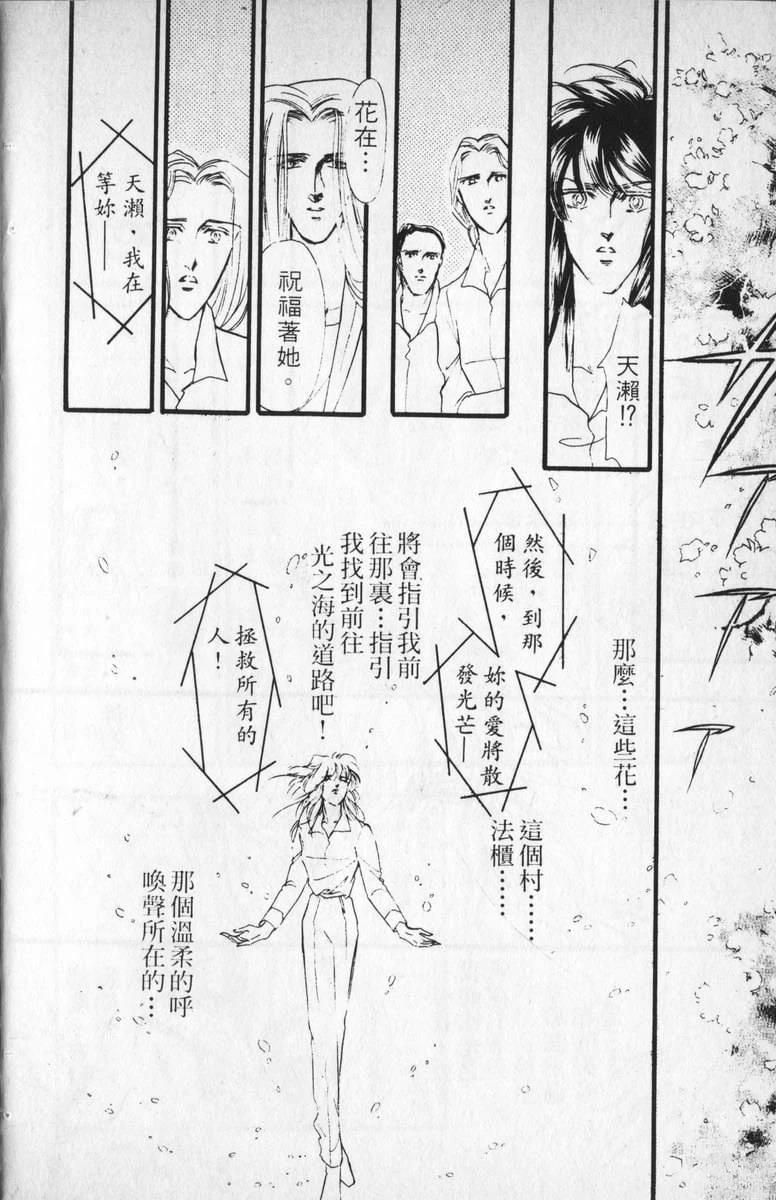 天瀨!?
花在…
祝福著她。
天瀨，我在
等妳——
那麼…這些花…
這個村……
法櫃……
然後，到那
個時候，
妳的愛將散
發光芒—
將會指引我前
往那裏…指引
我找到前往
光之海的道路吧！
拯救所有的
人！
那個溫柔的呼
喚聲所在的…